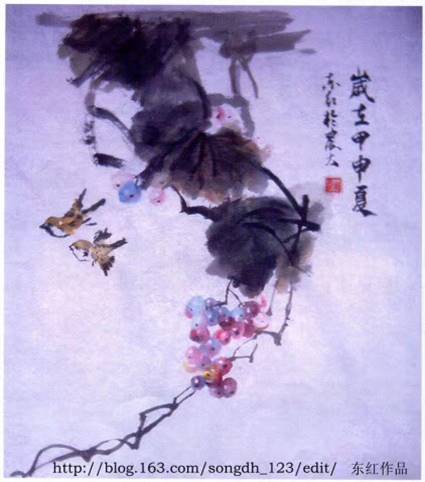 歲在甲申夏
东红於农大
http://blog.163.com/songdh_123/edit/ 东红作品